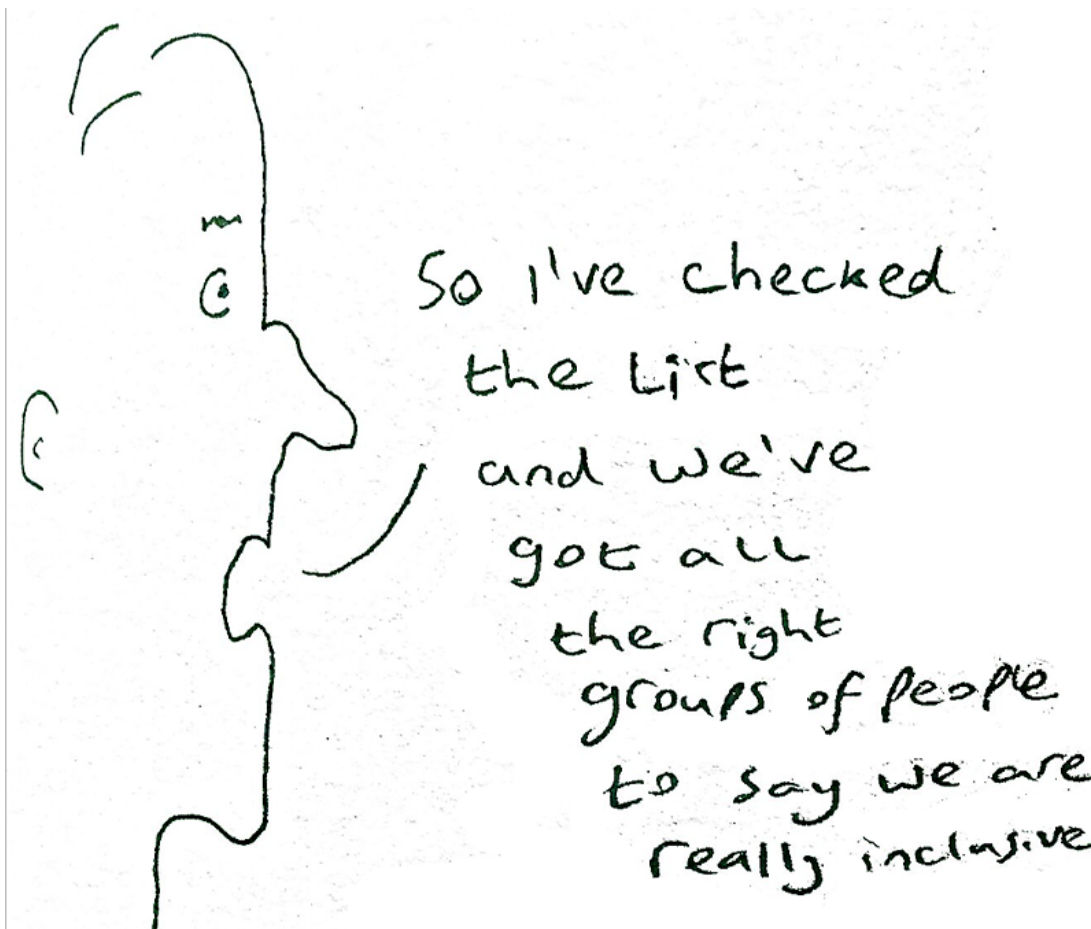 So I've checked
the List
and we've
got all
the right
groups of people
to say we are
really inclusive